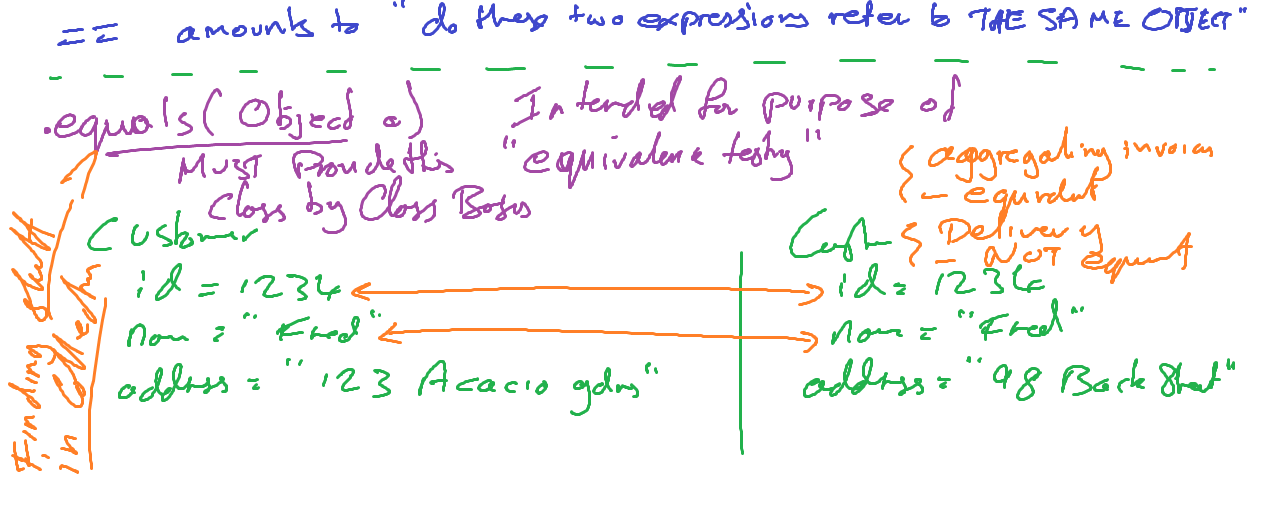 == amounts to "do these two expressions refer to THE SAME OBJECT"
.equals(Object o) Intended for purpose of
"equivalence testing"
MUST Provide this
Class by Class Basis
{ aggregating invoices
– equivalent
{ Delivery
– NOT equivalent
Finding stuff
in Collection
Customer
id = 1234
name = "Fred"
address = "123 Acacia gdns"
id = 1234
name = "Fred"
address = "98 Back Street"